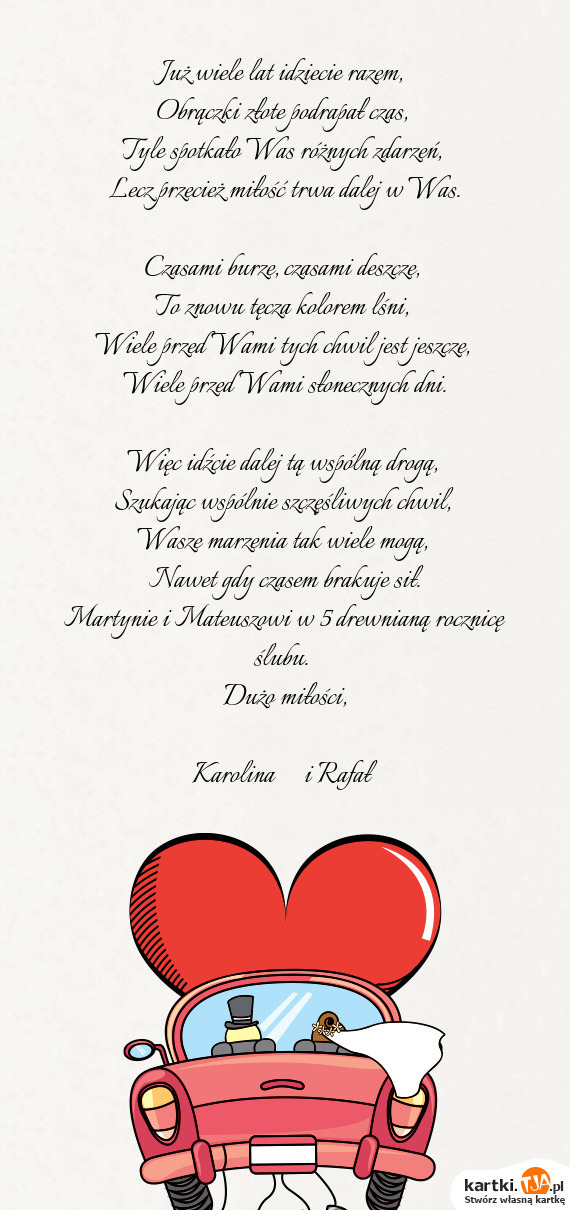 Już wiele lat idziecie razem,
Obrączki złote podrapał czas,
Tyle spotkało Was różnych zdarzeń,
Lecz przecież miłość trwa dalej w Was.
Czasami burze, czasami deszcze,
To znowu tęcza kolorem lśni,
Wiele przed Wami tych chwil jest jeszcze,
Wiele przed Wami słonecznych dni.
Więc idźcie dalej tą wspólną drogą,
Szukając wspólnie szczęśliwych chwil,
Wasze marzenia tak wiele mogą,
Nawet gdy czasem brakuje sił.
Martynie i Mateuszowi w 5 drewnianą rocznicę
ślubu.
Dużo miłości,
Karolina i Rafał
kartki.TJA.pl
Stwórz własną kartkę